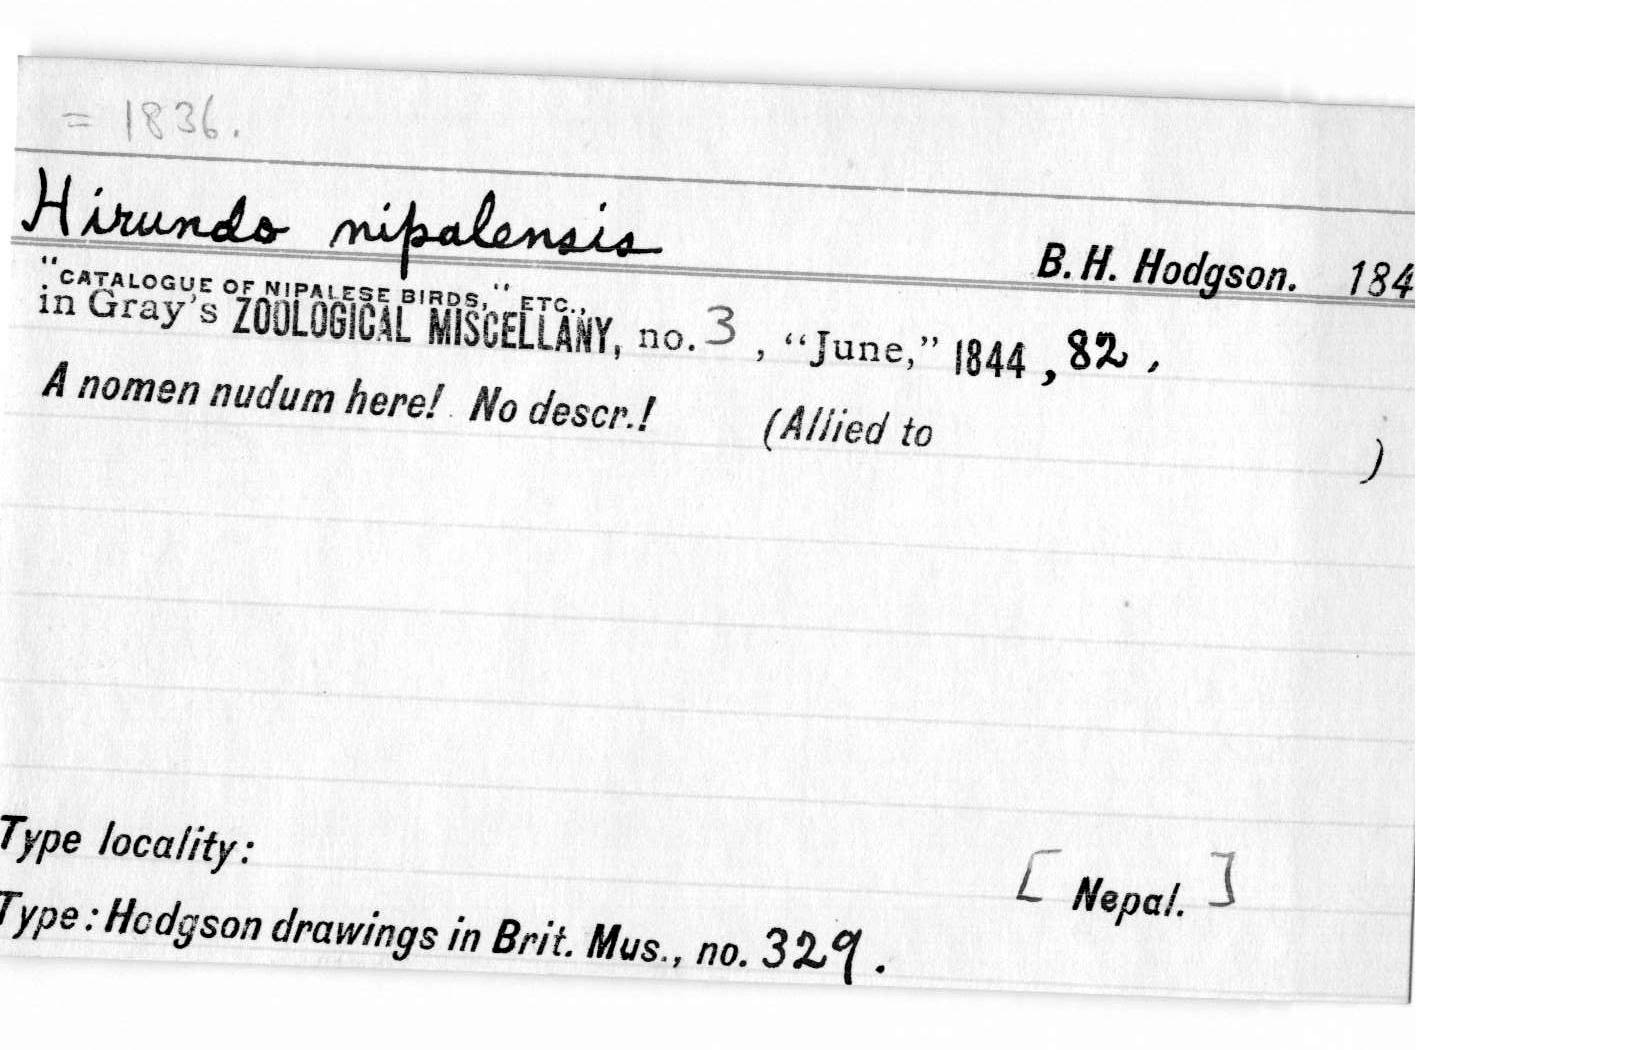 = 1836.
Hirundo nipalensis B. H. Hodgson. 184
"CATALOGUE OF NIPALESE BIRDS," ETC.,
in Gray's ZOOLOGICAL MISCELLANY, no. 3, "June," 1844, 82.
A nomen nudum here! No descr.! (Allied to )
Type locality: [Nepal.]
Type: Hodgson drawings in Brit. Mus., no. 329.